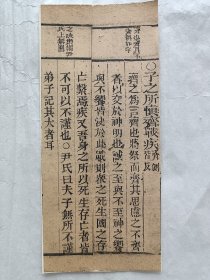 ○子之所慎齊戰疾齊側皆反
齊之為言齊也將祭而齊其思慮之不齊
者以交於神明也誠之至與不至神之饗
與不饗皆決於此戰則衆之死生國之存
亡繫焉疾又吾身之所以死生存亡者皆
不可以不謹也○尹氏曰夫子無所不謹
弟子記其大者耳